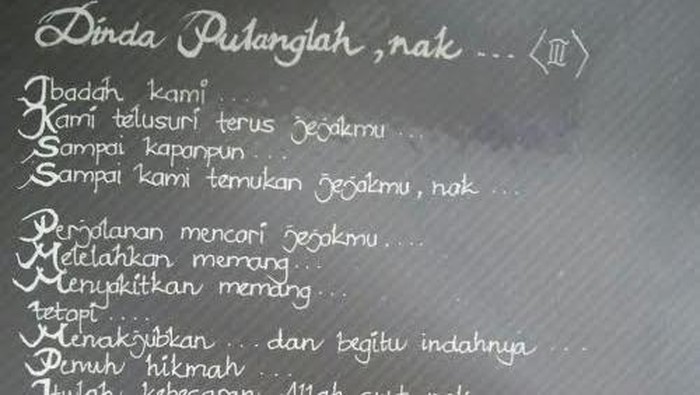 Dinda Pulanglah, nak ... <III>
Ibadah kami ...
Kami telusuri terus jejakmu ...
Sampai kapanpun ...
Sampai kami temukan jejakmu, nak ...
Perjalanan mencari jejakmu ....
Melelahkan memang ...
Menyakitkan memang ...
tetapi ....
Menakjubkan ... dan begitu indahnya ...
Penuh hikmah ...
Itulah kebesaran Allah swt, nak